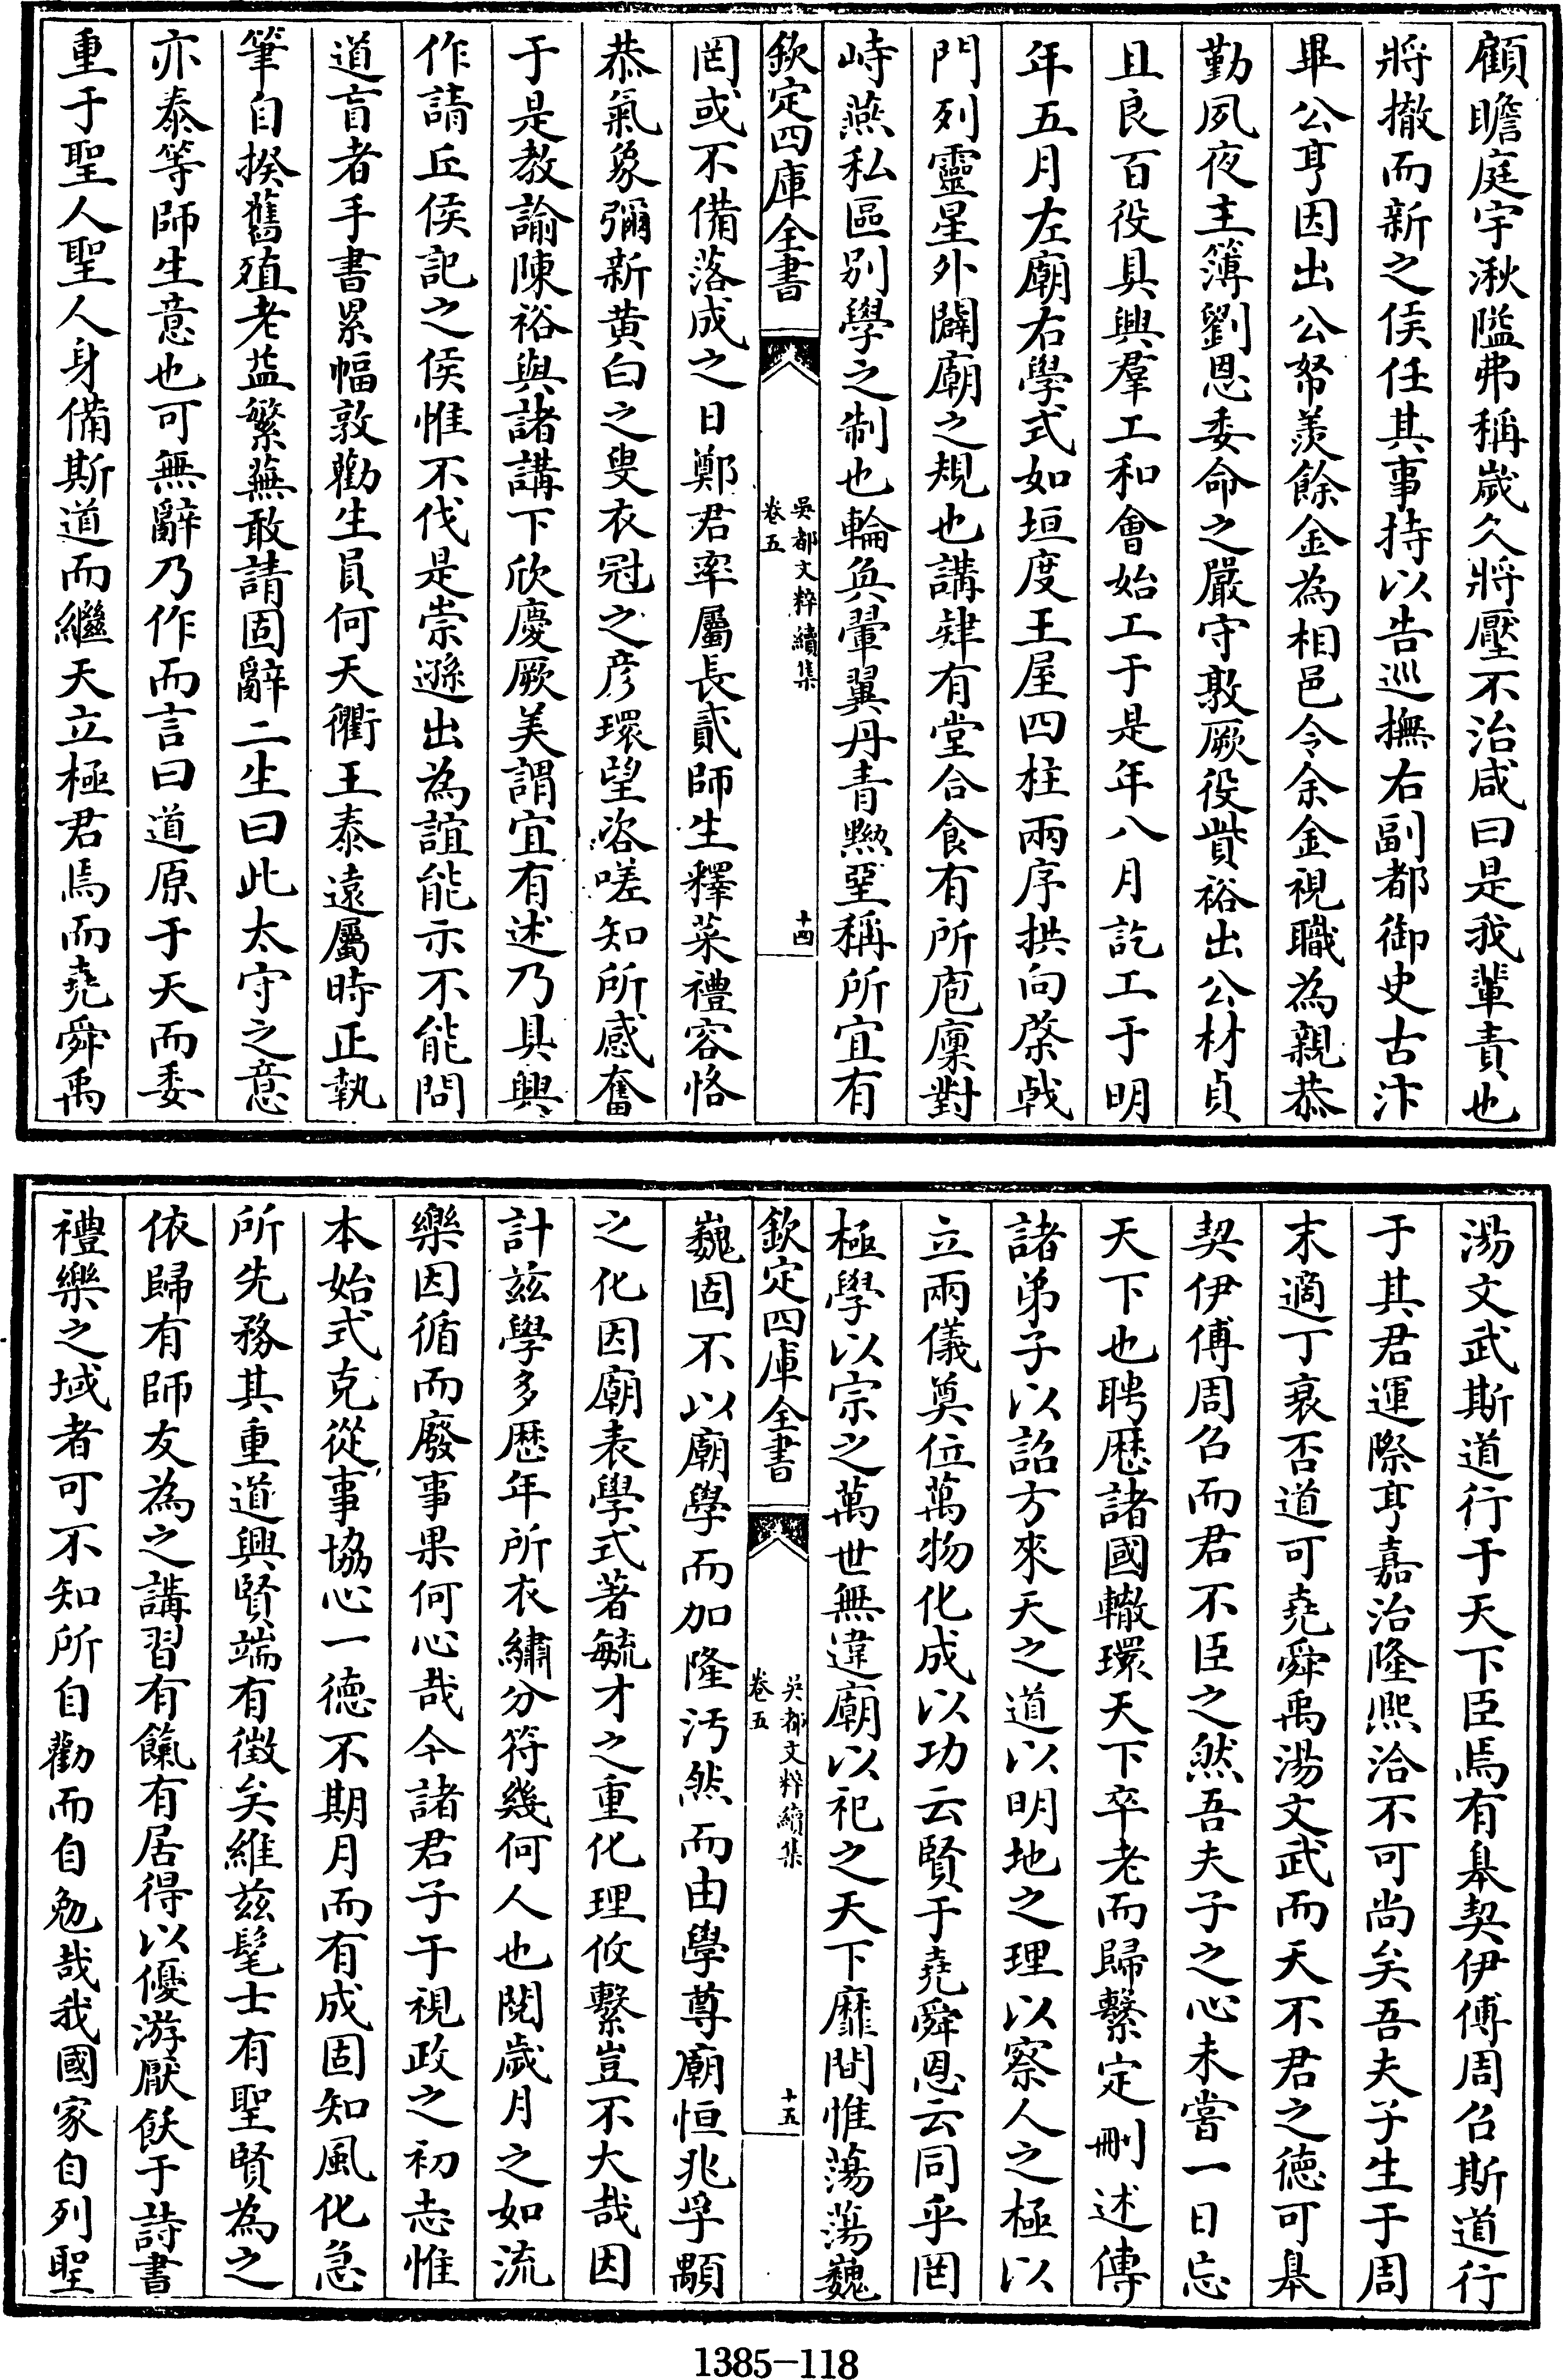 顧瞻庭宇湫隘弗稱歲久將壓不治咸曰是我輩責也
將撤而新之侯任其事持以告巡撫右副都御史古汴
畢公亨因出公帑羨餘金為相邑令余金視職為親恭
勤夙夜主簿劉恩委命之嚴守敦厥役貲裕出公材貞
且良百役具興羣工和會始工于是年八月訖工于明
年五月左廟右學式如垣度王屋四柱兩序拱向棨戟
門列靈星外闢廟之規也講肄有堂合食有所庖廩對
峙燕私區別學之制也輪奐翬翼丹青黝堊稱所宜有
欽定四庫全書
吳都文粹續集
卷五
十四
罔或不備落成之日鄭君率屬長貳師生釋菜禮容恪
恭氣象彌新黃白之叟衣冠之彦環望咨嗟知所感奮
于是教諭陳裕與諸講下欣慶厥美謂宜有述乃具興
作請丘侯記之侯惟不伐是崇遜出為誼能示不能問
道盲者手書累幅敦勸生員何天衢王泰遠屬時正執
筆自揆舊殖老益繁蕪敢請固辭二生曰此太守之意
亦泰等師生意也可無辭乃作而言曰道原于天而委
重于聖人聖人身備斯道而繼天立極君焉而堯舜禹
湯文武斯道行于天下臣焉有臯契伊傅周召斯道行
于其君運際亨嘉治隆熙洽不可尚矣吾夫子生于周
末適丁衰否道可堯舜禹湯文武而天不君之徳可臯
契伊傅周召而君不臣之然吾夫子之心未嘗一日忘
天下也聘歴諸國轍環天下卒老而歸繫定刪述傳
諸弟子以詔方來天之道以明地之理以察人之極以
立兩儀奠位萬物化成以功云賢于堯舜恩云同乎罔
極學以宗之萬世無違廟以祀之天下靡間惟蕩蕩巍
欽定四庫全書
吳都文粹續集
卷五
十五
巍固不以廟學而加隆汚然而由學尊廟恒兆孚顒
之化因廟表學式著毓才之重化理攸繫豈不大哉因
計兹學多歴年所衣繡分符幾何人也閱歲月之如流
樂因循而廢事果何心哉今諸君子于視政之初志惟
本始式克從事協心一徳不期月而有成固知風化急
所先務其重道興賢端有徴矣維兹髦士有聖賢為之
依歸有師友為之講習有餼有居得以優游厭飫于詩書
禮樂之域者可不知所自勸而自勉哉我國家自列聖
1385-118